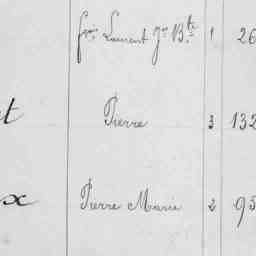 fois Laurent Jn Bte 1 26
t Pierre 3 132
x Pierre Marie 2 95